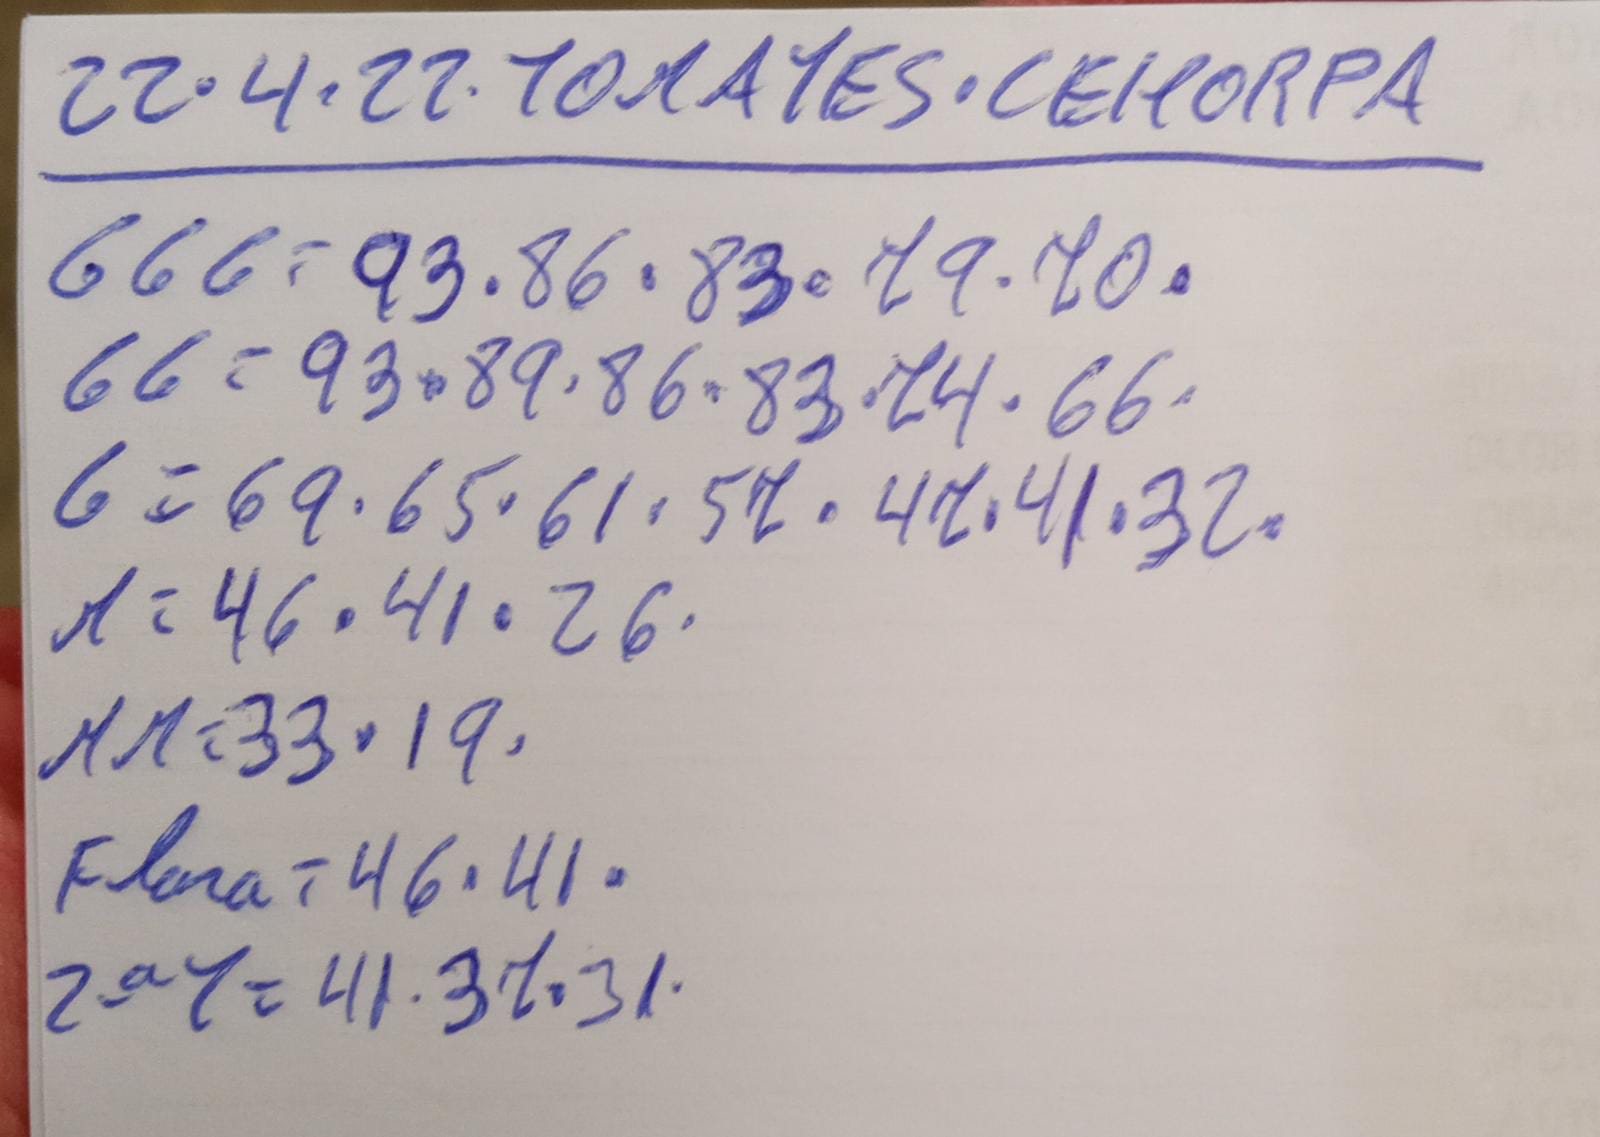 22.4.22.TOMATES.CEHORPA
GGG=93.86.83.79.70.
GG=93.89.86.83.74.66.
G=69.65.61.57.47.41.32.
M=46.41.26.
MM=33.19.
Flora=46.41.
2ªT=41.37.31.